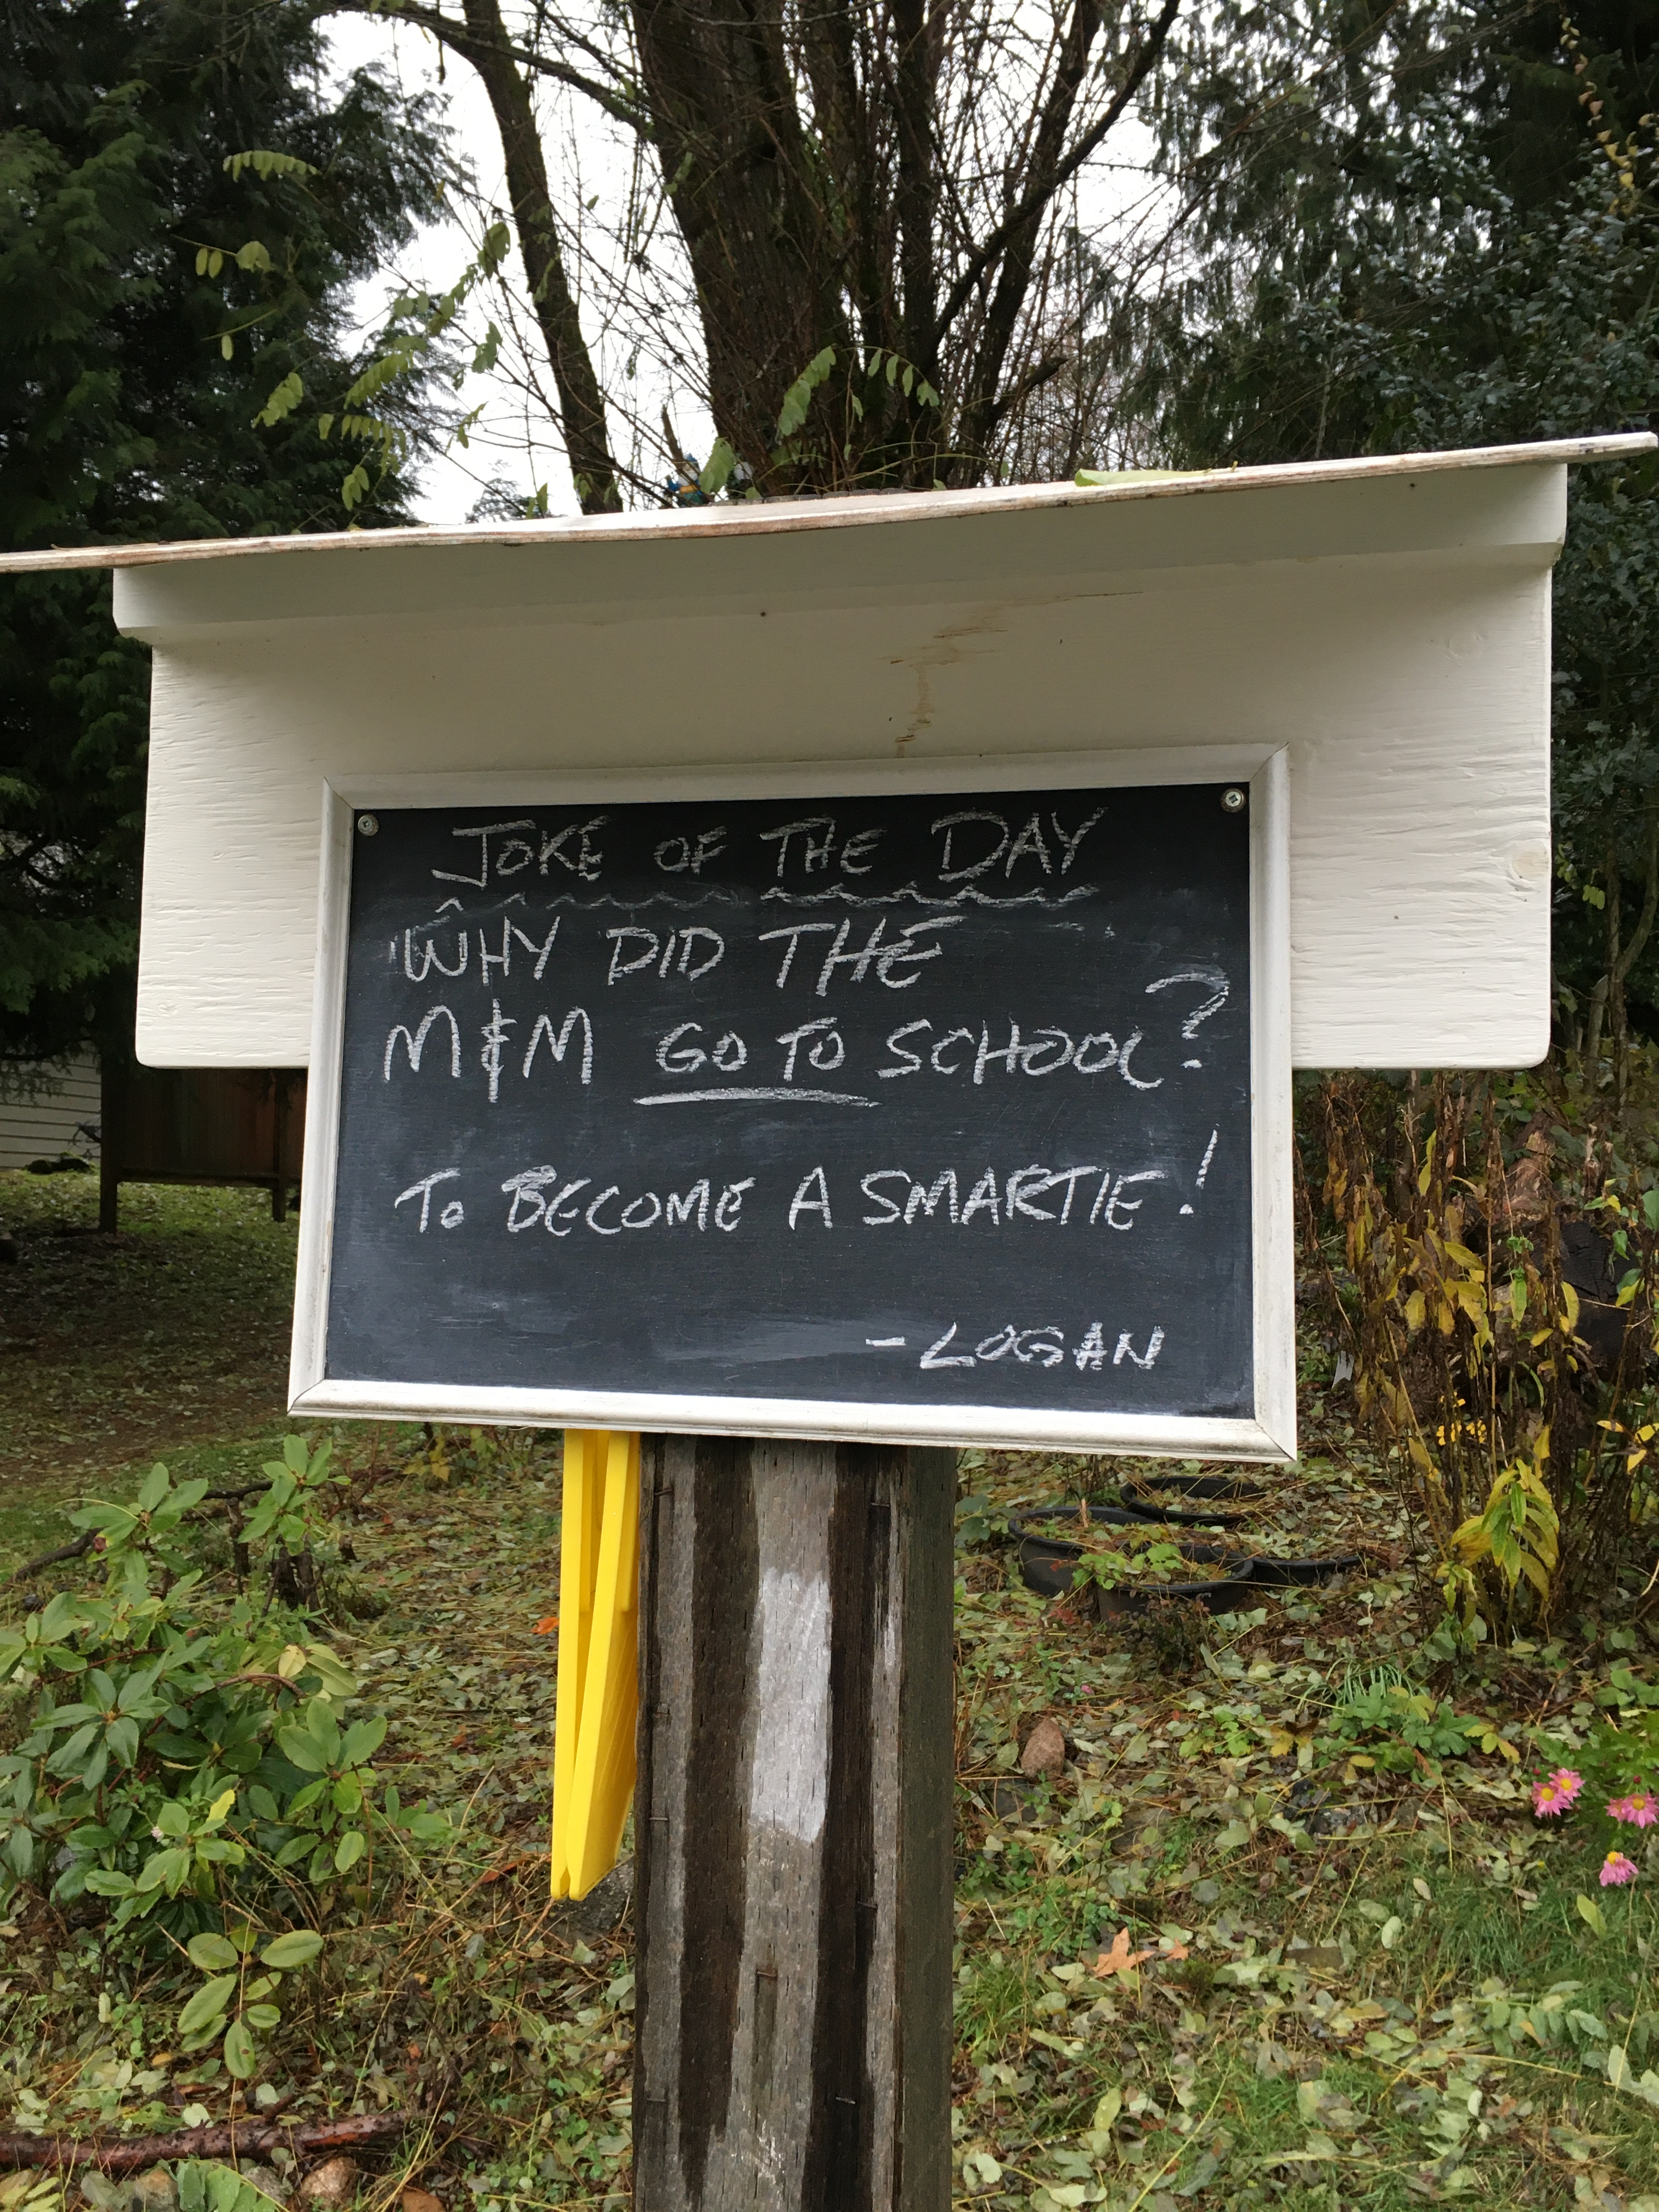 JOKE OF THE DAY
WHY DID THE
M&M GO TO SCHOOL?
TO BECOME A SMARTIE!
- LOGAN